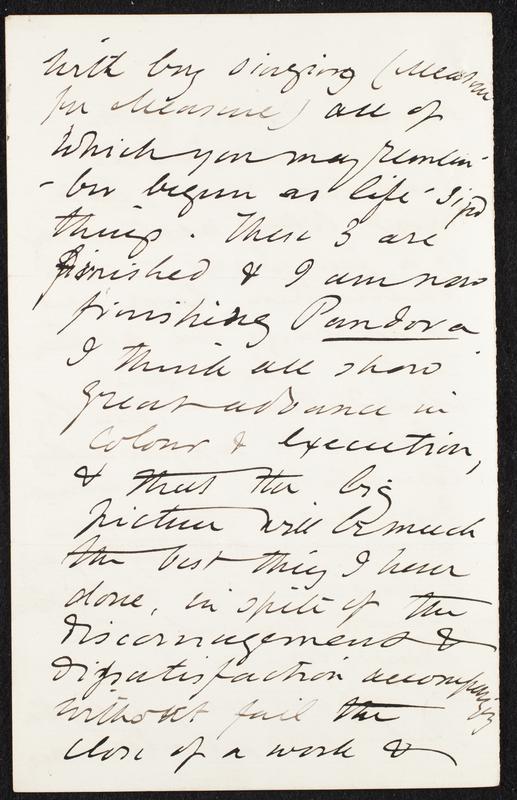 with boy singing (Measure
for Measure) all of
which you may remem-
-ber begun as life-sized
things. These 3 are
finished & I am now
finishing Pandora.
I think all show
great advance in
colour & execution,
& that the big
picture will be much
the best thing I have
done, in spite of the
discouragement &
dissatisfaction accompanying
without fail the
close of a work &